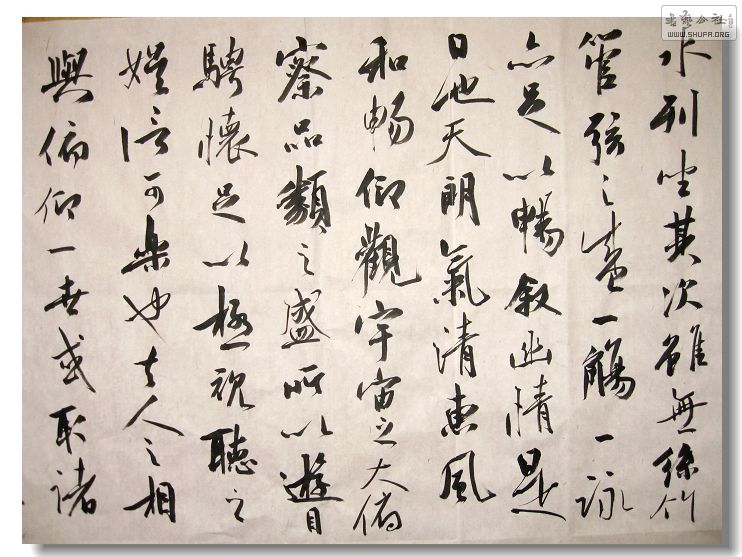 水列坐其次雖無絲竹
管弦之盛一觴一詠
亦足以暢敘幽情是
日也天朗氣清惠風
和暢仰觀宇宙之大俯
察品類之盛所以遊目
騁懷足以極視聽之
娛信可樂也夫人之相
與俯仰一世或取諸
书艺公社
WWW.SHUFA.ORG